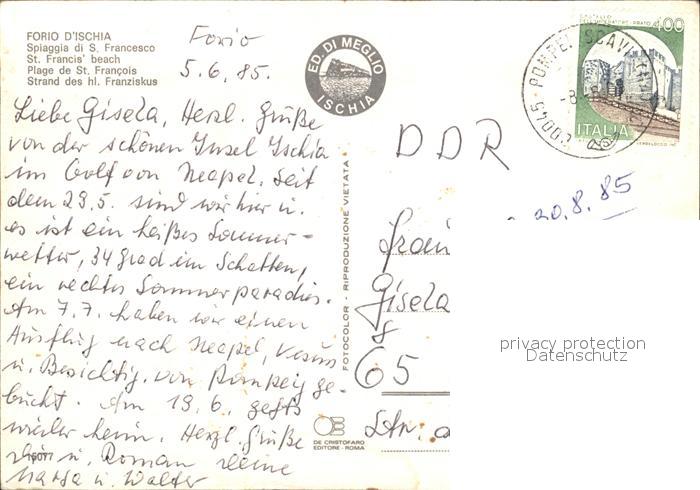 FORIO D'ISCHIA
Spiaggia di S. Francesco
St. Francis' beach
Plage de St. François
Strand des hl. Franziskus
Forio
5.6.85.
ED. DI MEGLIO
ISCHIA
400
ITALIA
80045 - POMPEI SCAVI
Liebe Gisela, Herzl. Grüße
von der schönen Insel Ischia
im Golf von Neapel. Seit
dem 29.5. sind wir hier u.
es ist ein heißes Sommer-
wetter, 34 grad im Schatten,
ein rechtes Sommerparadies.
Am 7.7. haben wir einen
Ausflug nach Neapel, Vesuv
u. Besichtig. von Pompeij ge-
bucht. Am 19.6. gehts
wieder heim. Herzl. Grüße
u. Roman deine
u. Walter
16077
FOTOCOLOR - RIPRODUZIONE VIETATA
DE CRISTOFARO
EDITORE - ROMA
DDR
20.8.85
Frau
Gisela
65
Str.
privacy protection
Datenschutz